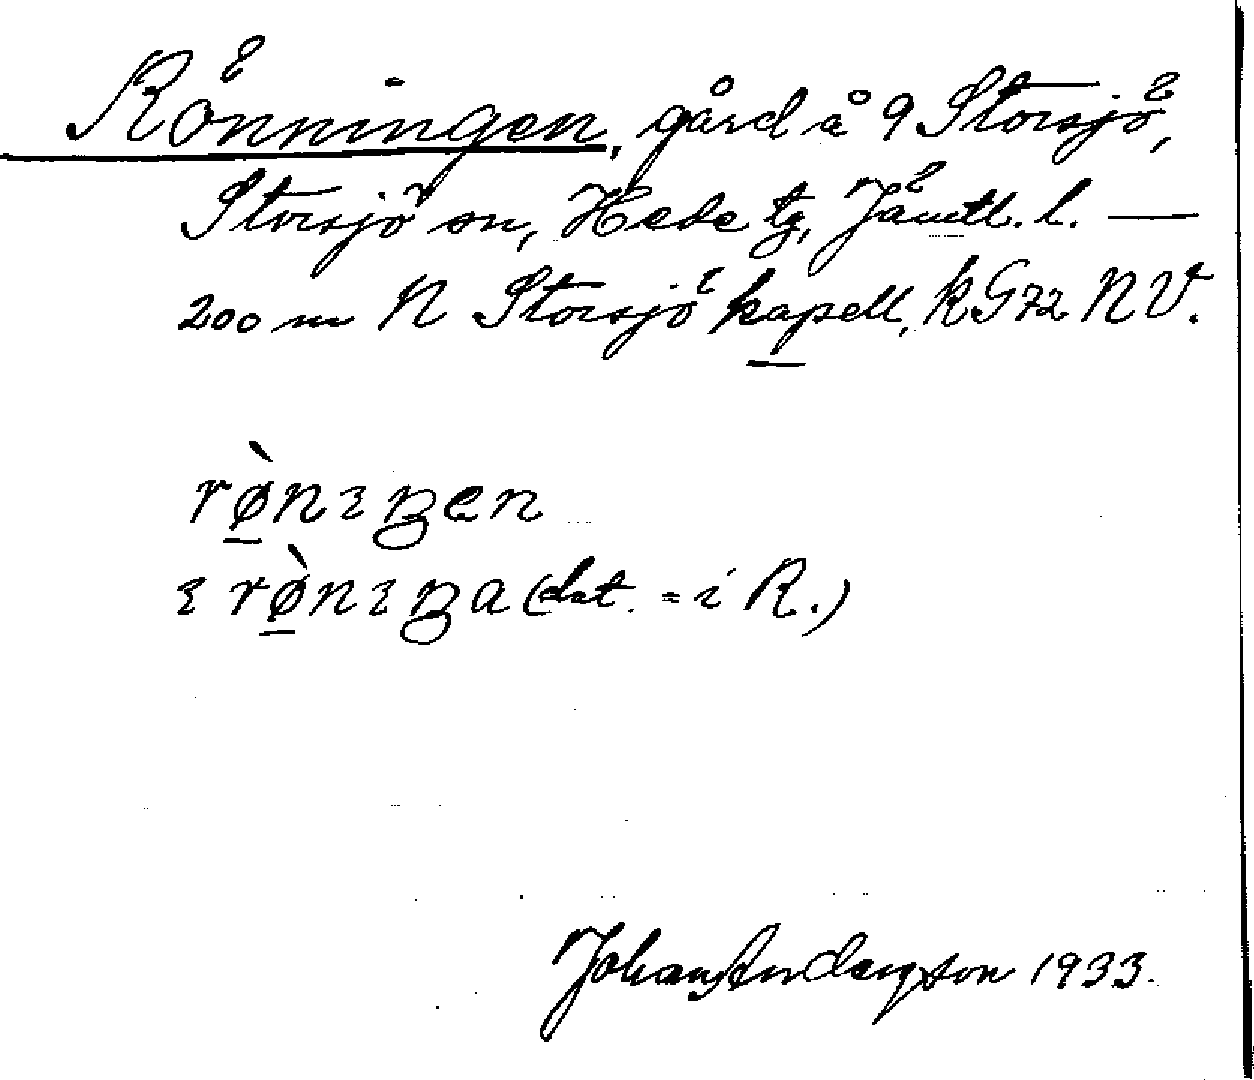 Rönningen, gård å 9 Storsjö,
Storsjö sn, Hede tg, Jämtl. l. —
200 m N Storsjö kapell, kG72 NV.
rø̀nıŋen
ı rø̀nıŋa (dat. = i R.)
Johan Anderzson 1933.